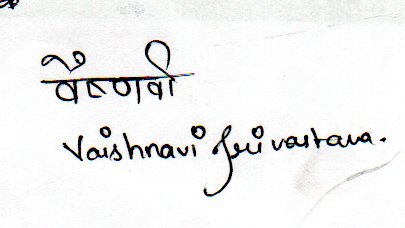 वैष्णवी
Vaishnavi Srivastava.